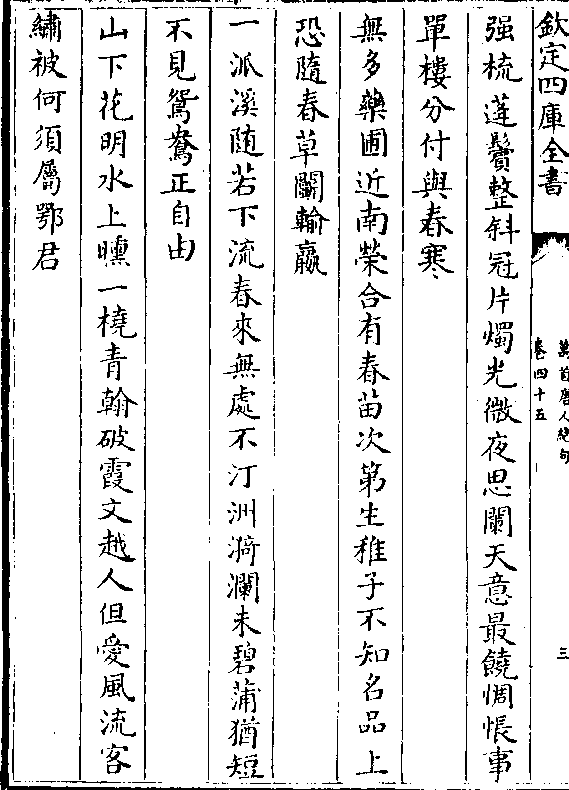 欽定四庫全書
萬首唐人絕句
卷四十五
三
强梳蓬鬢整斜冠片燭光微夜思闌天意最饒惆悵事
單樓分付與春寒
無多藥圃近南榮合有春苗次第生稚子不知名品上
恐隨春草鬭輸贏
一派溪随若下流春來無處不汀洲漪瀾未碧蒲猶短
不見鴛鴦正自由
山下花明水上曛一橈青翰破霞文越人但愛風流客
繡被何須屬鄂君